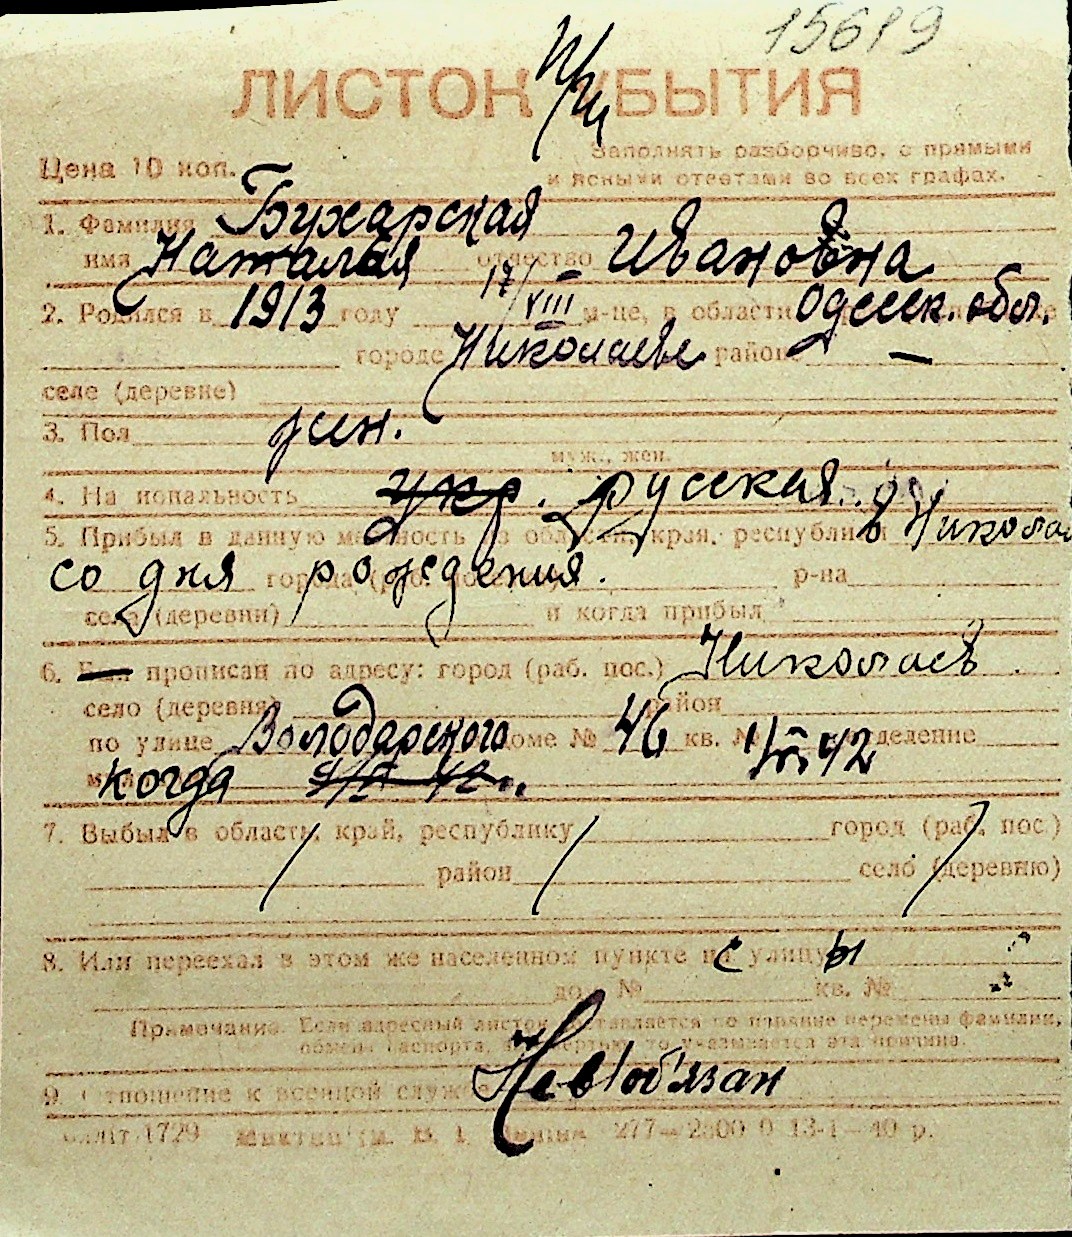 15619
ЛИСТОК УБЫТИЯ
Цена 10 коп.
Заполнять разборчиво, с прямыми
и ясными ответами во всех графах.
1. Фамилия Бухарская
имя Наталья отчество Ивановна
2. Родился в 1913 году 17/VIII м-це, в области Одесск. обл.
городе Николаеве районе —
селе (деревне)
3. Пол жен.
муж., жен.
4. Национальность укр. русская.
5. Прибыл в данную местность из области, края, республики в Никола
со дня рождения. города р-на
села (деревни) и когда прибыл
6. Был прописан по адресу: город (раб. пос.) Николаев.
село (деревня) район
по улице Володарского доме № 46 кв. № отделение
когда 42
7. Выбыл в область, край, республику город (раб. пос.)
район село (деревню)
8. Или переехал в этом же населенном пункте с улицы
дом № кв. №
Примечание. Если адресный листок составляется по причине перемены фамилии,
обмена паспорта, то указывается эта причина.
9. Отношение к военной службе Нев/об'язан
1729 277—2800 0 13-1—40 р.